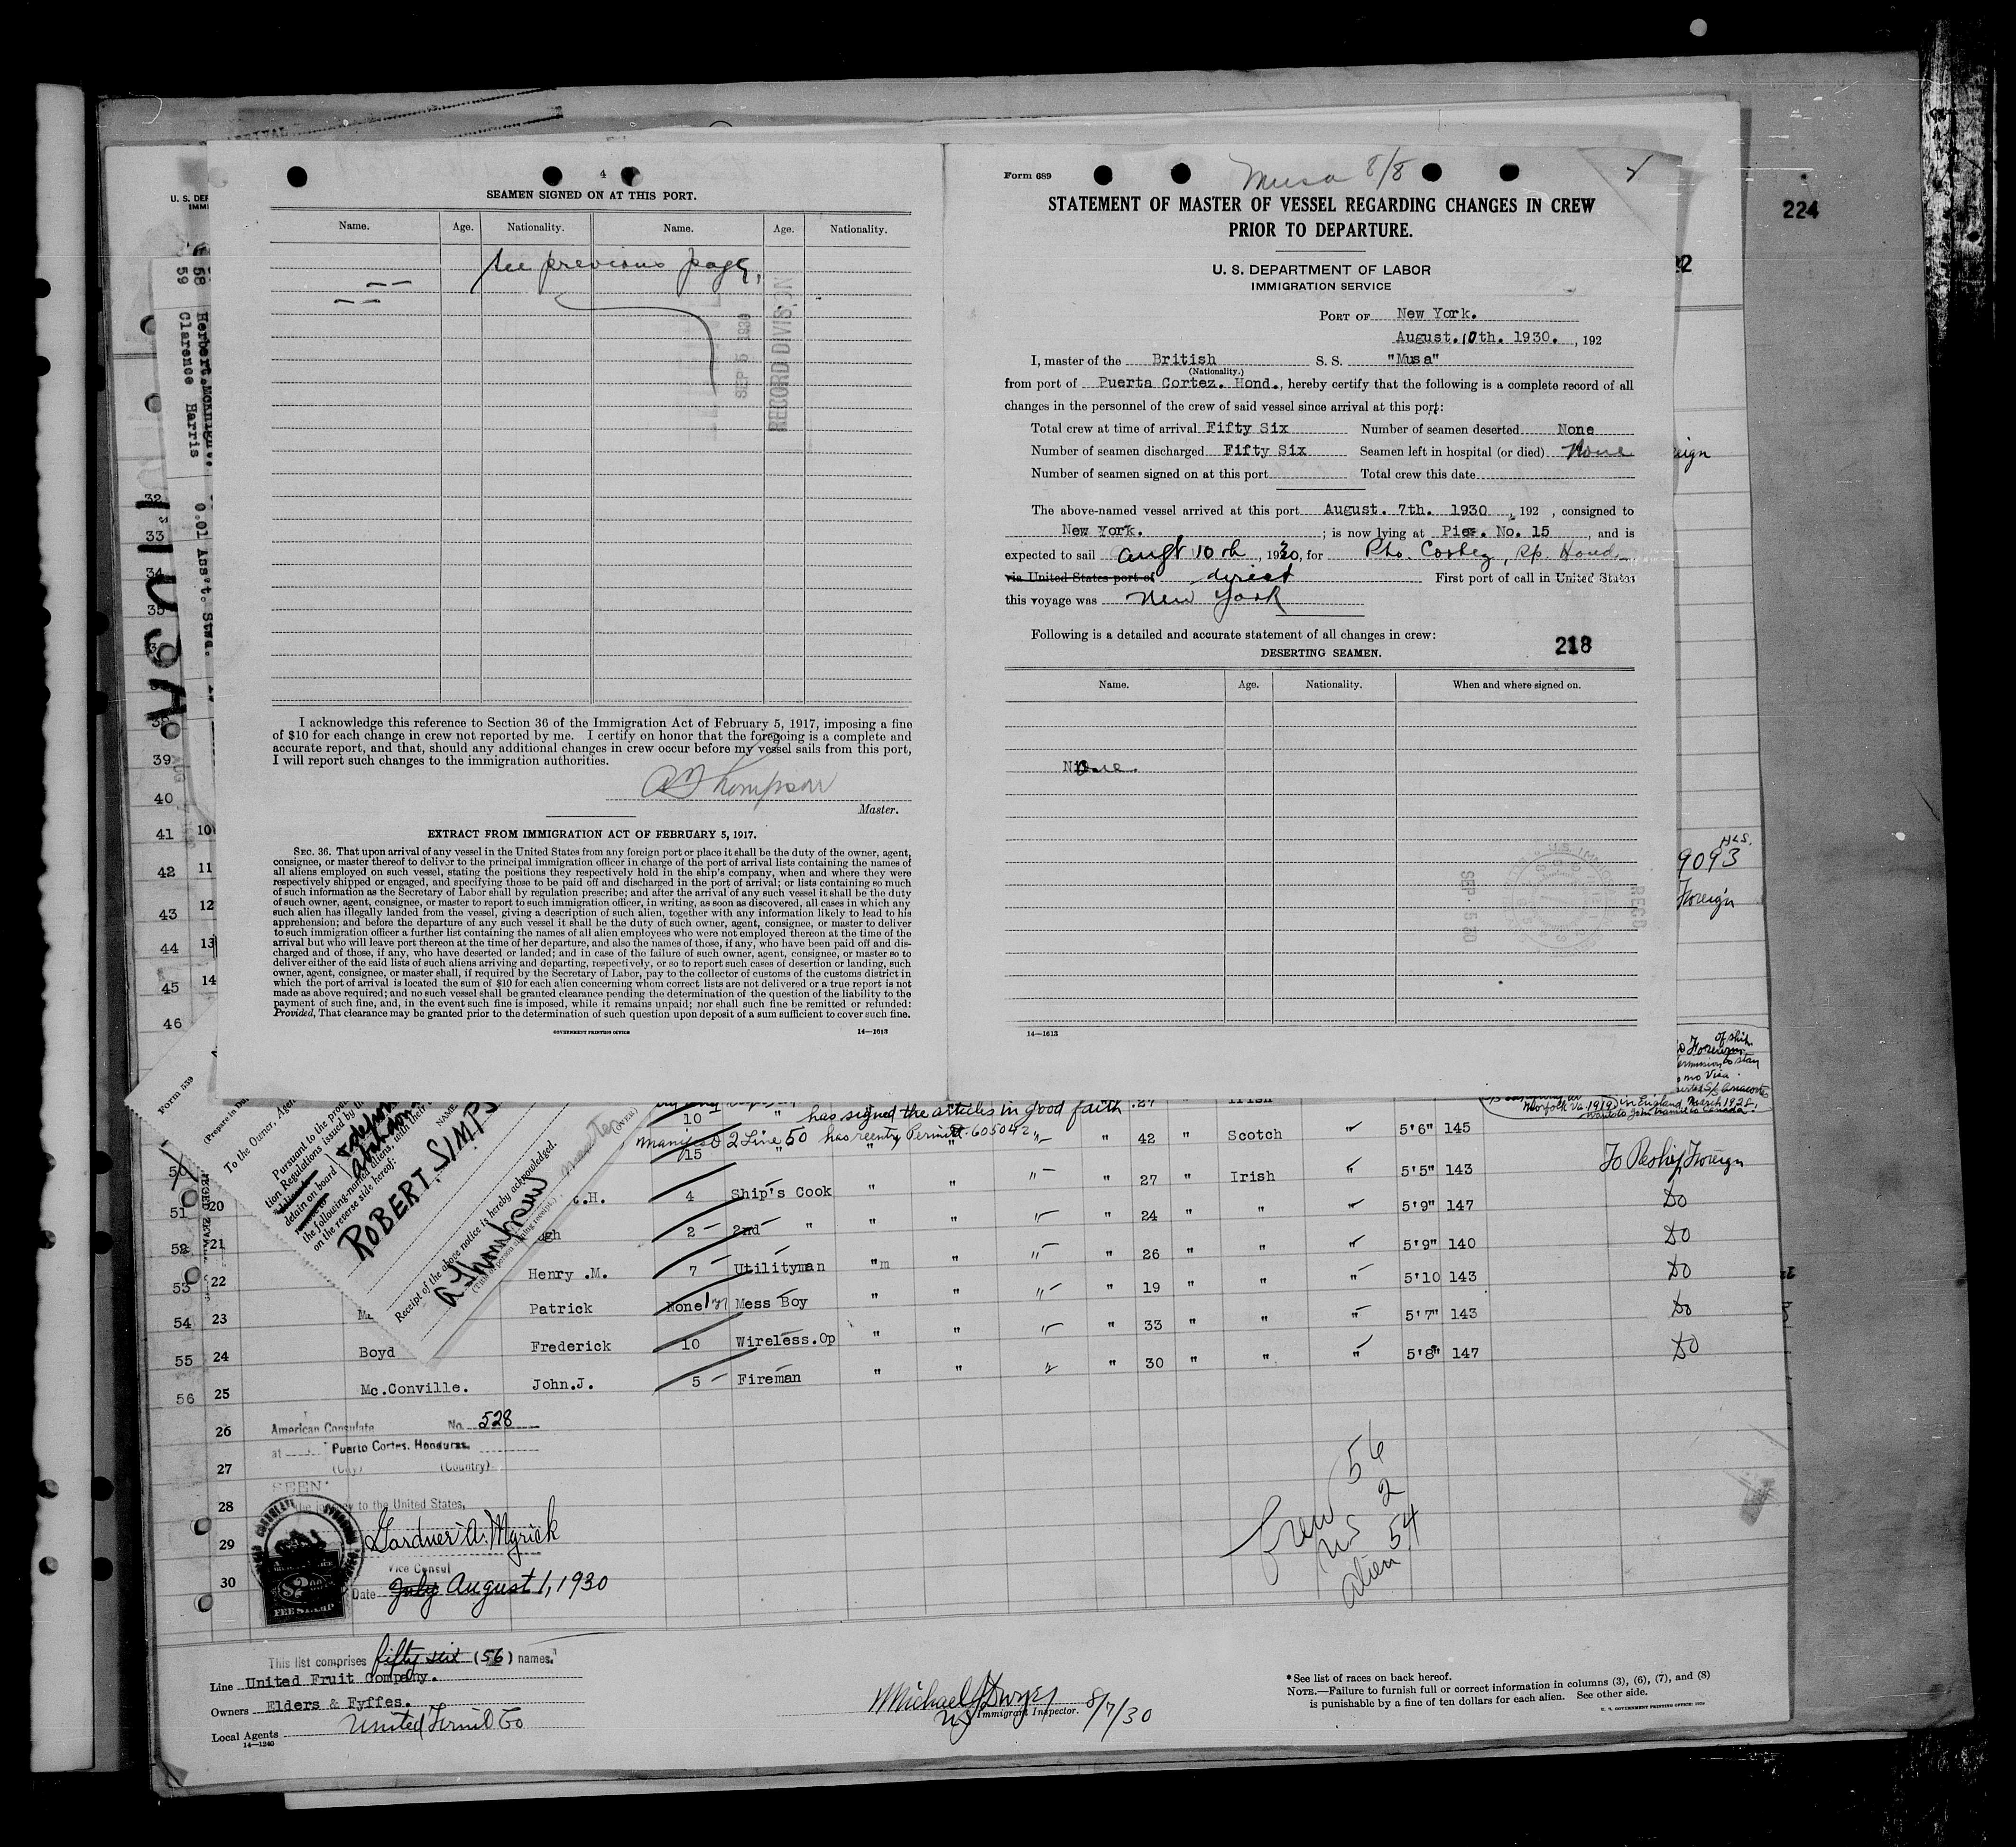 4
SEAMEN SIGNED ON AT THIS PORT.
Name. Age. Nationality. Name. Age. Nationality.
See previous page,
SEP 5 1930
RECORD DIVISION
I acknowledge this reference to Section 36 of the Immigration Act of February 5, 1917, imposing a fine
of $10 for each change in crew not reported by me. I certify on honor that the foregoing is a complete and
accurate report, and that, should any additional changes in crew occur before my vessel sails from this port,
I will report such changes to the immigration authorities.
Thompson
Master.
EXTRACT FROM IMMIGRATION ACT OF FEBRUARY 5, 1917.
SEC. 36. That upon arrival of any vessel in the United States from any foreign port or place it shall be the duty of the owner, agent,
consignee, or master thereof to deliver to the principal immigration officer in charge of the port of arrival lists containing the names of
all aliens employed on such vessel, stating the positions they respectively hold in the ship's company, when and where they were
respectively shipped or engaged, and specifying those to be paid off and discharged in the port of arrival; or lists containing so much
of such information as the Secretary of Labor shall by regulation prescribe; and after the arrival of any such vessel it shall be the duty
of such owner, agent, consignee, or master to report to such immigration officer, in writing, as soon as discovered, all cases in which any
such alien has illegally landed from the vessel, giving a description of such alien, together with any information likely to lead to his
apprehension; and before the departure of any such vessel it shall be the duty of such owner, agent, consignee, or master to deliver
to such immigration officer a further list containing the names of all alien employees who were not employed thereon at the time of the
arrival but who will leave port thereon at the time of her departure, and also the names of those, if any, who have been paid off and dis-
charged and of those, if any, who have deserted or landed; and in case of the failure of such owner, agent, consignee, or master so to
deliver either of the said lists of such aliens arriving and departing, respectively, or so to report such cases of desertion or landing, such
owner, agent, consignee, or master shall, if required by the Secretary of Labor, pay to the collector of customs of the customs district in
which the port of arrival is located the sum of $10 for each alien concerning whom correct lists are not delivered or a true report is not
made as above required; and no such vessel shall be granted clearance pending the determination of the question of the liability to the
payment of such fine, and, in the event such fine is imposed, while it remains unpaid; nor shall such fine be remitted or refunded:
Provided, That clearance may be granted prior to the determination of such question upon deposit of a sum sufficient to cover such fine.
GOVERNMENT PRINTING OFFICE 14—1613
Form 689
Musa 8/8
STATEMENT OF MASTER OF VESSEL REGARDING CHANGES IN CREW
PRIOR TO DEPARTURE.
U. S. DEPARTMENT OF LABOR
IMMIGRATION SERVICE
PORT OF New York.
August. 10th. 1930. , 192
I, master of the British S. S. "Musa"
(Nationality.)
from port of Puerta Cortez. Hond., hereby certify that the following is a complete record of all
changes in the personnel of the crew of said vessel since arrival at this port:
Total crew at time of arrival Fifty Six Number of seamen deserted None
Number of seamen discharged Fifty Six Seamen left in hospital (or died) None
Number of seamen signed on at this port Total crew this date
The above-named vessel arrived at this port August. 7th. 1930 , 192 , consigned to
New York. ; is now lying at Pier. No. 15 , and is
expected to sail Augt 10th , 1930, for Pto. Cortez, Sp. Hond
via United States port of direct First port of call in United States
this voyage was New York
Following is a detailed and accurate statement of all changes in crew:
218
DESERTING SEAMEN.
Name. Age. Nationality. When and where signed on.
None.
SEP. 5 30
RECD
14—1613
224
22
eign
HLS.
9093
Foreign
U. S. DEP
IMMI
58 Herbert.McKnight.
59 Clarence Harris
0.01 Ass't. Stwd.
MUSA
32
33
34
35
39
40
41 10
42 11
43 12
44 13
45 14
46
Form 539
To the Owner, Agen
Pursuant to the prov
tion Regulations issued by th
detain on board
the following-named aliens, with their
on the reverse side hereof:
NAME
ROBERT. SIMPS
Receipt of the above notice is hereby acknowledged.
A Thompson
(Title of person signing receipt.)
master
(OVER)
of ship.
to Foreign
no Visa
Norfolk Va. 1919 in England March 1928.
10 " has signed the articles in good faith 27 " Irish
manifest 2 Line 50 has reentry Permit 605042
15 " " " 42 " Scotch 5'6" 145
50
51 20 c.H. 4 Ship's Cook " " " " 27 " Irish 5'5" 143 To Reship Foreign
52 21 gh 2 2nd " " " " " 24 " " 5'9" 147 Do
53 22 Henry .M. 7 Utilityman "m " " " 26 " " 5'9" 140 Do
54 23 Patrick None Mess Boy " " " " 19 " " 5'10 143 Do
55 24 Boyd Frederick 10 Wireless.Op " " " " 33 " " 5'7" 143 Do
56 25 Mc.Conville. John.J. 5 Fireman " " " " 30 " " 5'8" 147 Do
26 American Consulate No. 528
at Puerto Cortes. Honduras.
27 (City) (Country)
SEEN
28 the journey to the United States,
29 Gardner A. Myrick
Vice Consul
30 Date July August 1, 1930
FEE STAMP
Crew 56
US 2
Alien 54
This list comprises fifty six (56) names.
Line United Fruit Company.
Owners Elders & Fyffes.
Local Agents United Fruit Co
14—1240
Michael J Dwyer
Immigrant Inspector. 8/7/30
* See list of races on back hereof.
NOTE.—Failure to furnish full or correct information in columns (3), (6), (7), and (8)
is punishable by a fine of ten dollars for each alien. See other side.
U. S. GOVERNMENT PRINTING OFFICE: